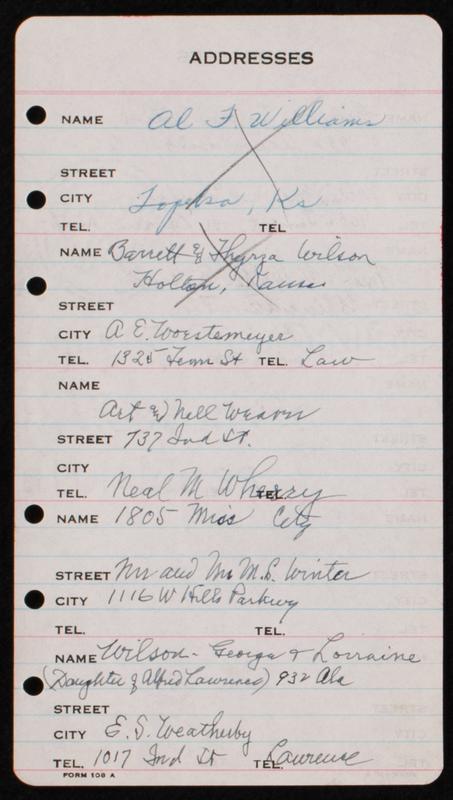 ADDRESSES
NAME Al F. Williams
STREET
CITY Topeka, Ks
TEL. TEL
NAME Barrett & Thyrza Wilson
Holton, Kansas
STREET
CITY A E. Woestemeyer
TEL. 1325 Tenn St TEL. Law
NAME
Art & Nell Weaver
STREET 737 Ind St.
CITY
TEL. Neal M Wherry TEL.
NAME 1805 Miss City
STREET Mr and Mrs M.S. Winter
CITY 1116 W Hills Parkway
TEL. TEL.
NAME Wilson - George & Lorraine
(Daughter of Alfred Lawrence) 932 Ala
STREET
CITY E. S. Weatherby
TEL. 1017 Ind St TEL. Lawrence
FORM 108 A